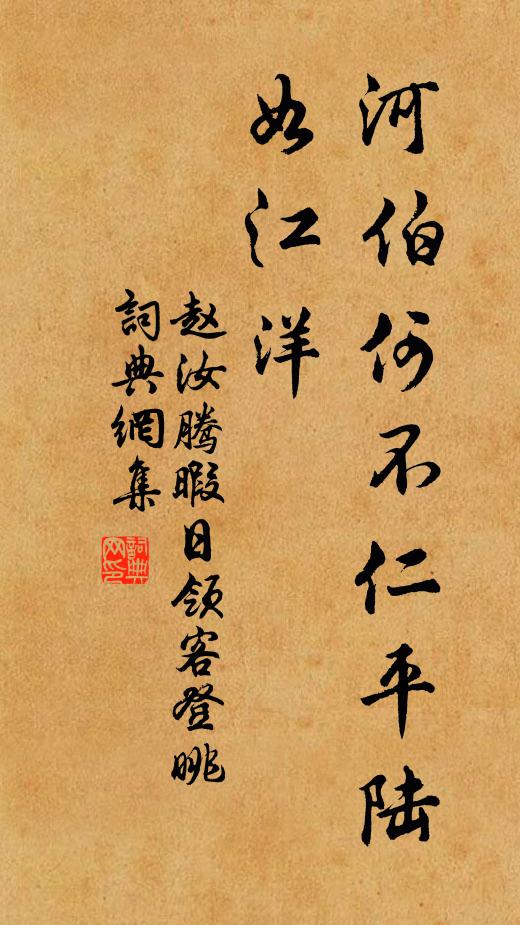 河伯何不仁平陆
如江洋
赵汝腾暇日领客登眺
詞典網集
詞典
网印